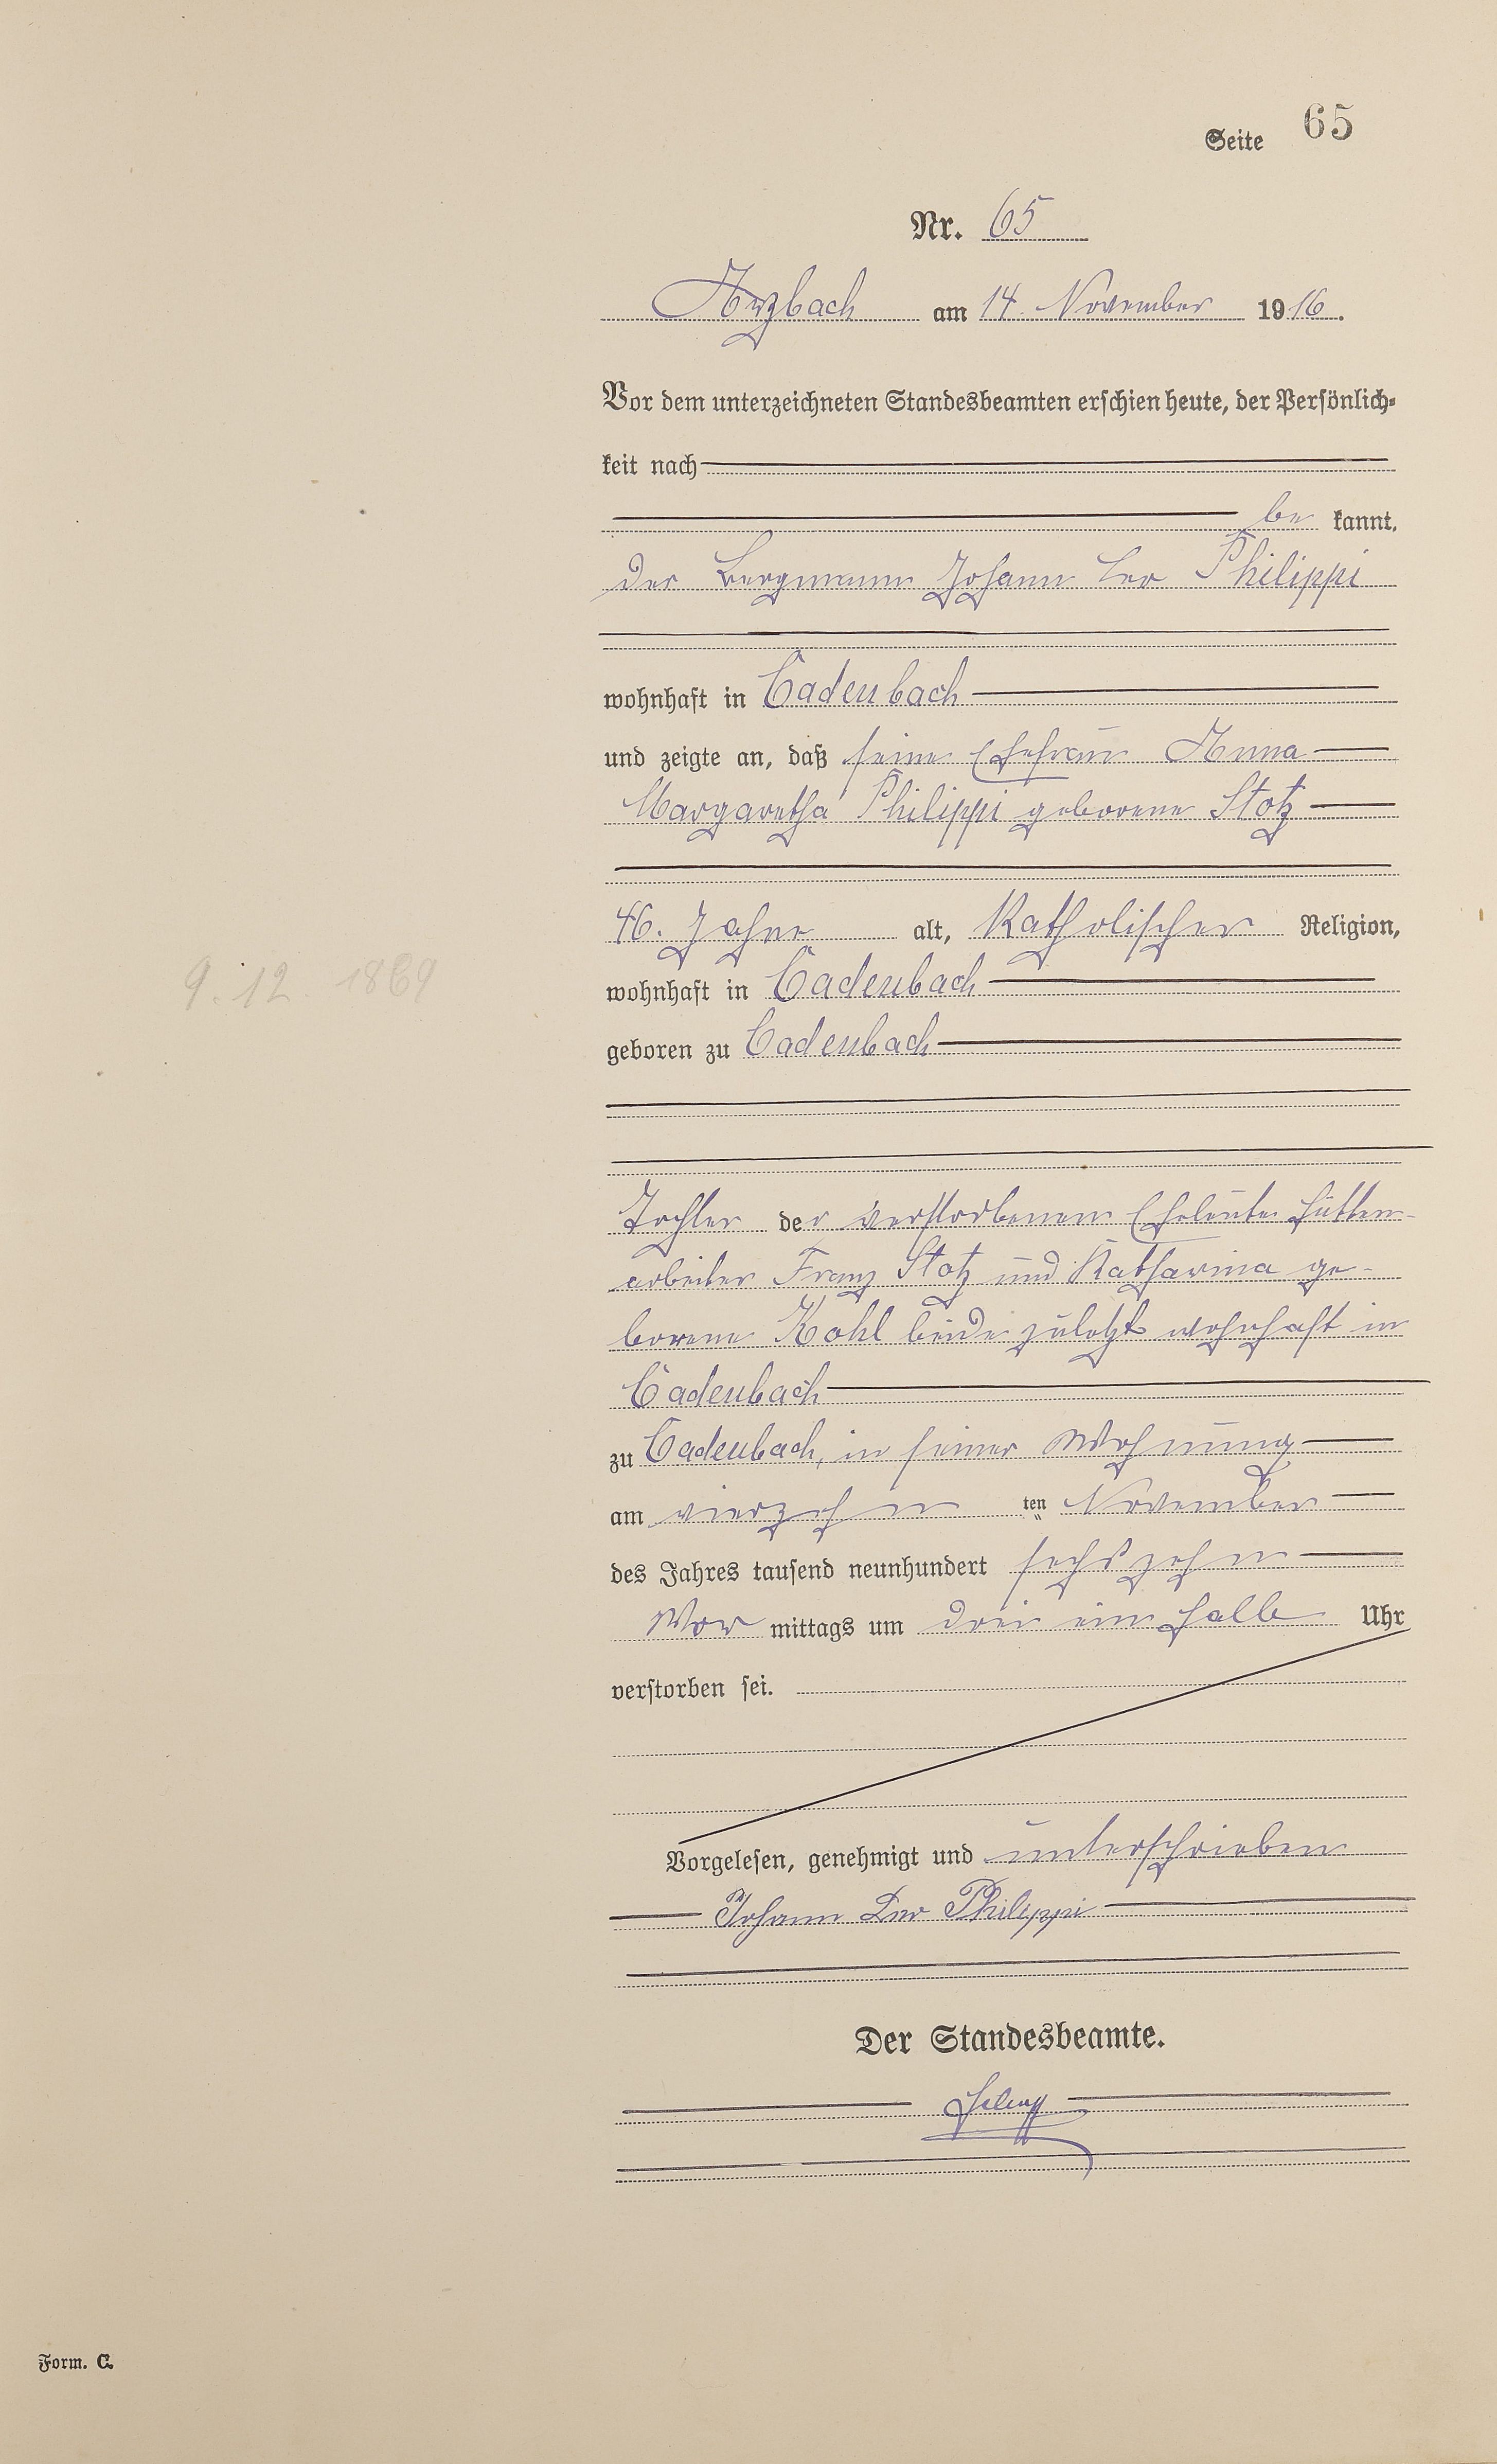 Seite 65
Nr. 65
Arzbach am 14. November 1916.
Vor dem unterzeichneten Standesbeamten erschien heute, der Persönlich-
keit nach
be kannt,
der Bergmann Johann Leo Philippi
wohnhaft in Cadenbach
und zeigte an, daß seine Ehefrau Anna
Margaretha Philippi geborene Stotz
46. Jahre alt, Katholischer Religion,
wohnhaft in Cadenbach
9. 12. 1869
geboren zu Cadenbach
Tochter der verstorbenen Eheleute Hütten-
arbeiter Franz Stotz und Katharina ge-
borene Kohl beide zuletzt wohnhaft in
Cadenbach
zu Cadenbach, in seiner Wohnung
am vierzehn ten November
des Jahres tausend neunhundert sechszehn
Vor mittags um drei ein halb Uhr
verstorben sei.
Vorgelesen, genehmigt und unterschrieben
Johann Leo Philippi
Der Standesbeamte.
Form. C.